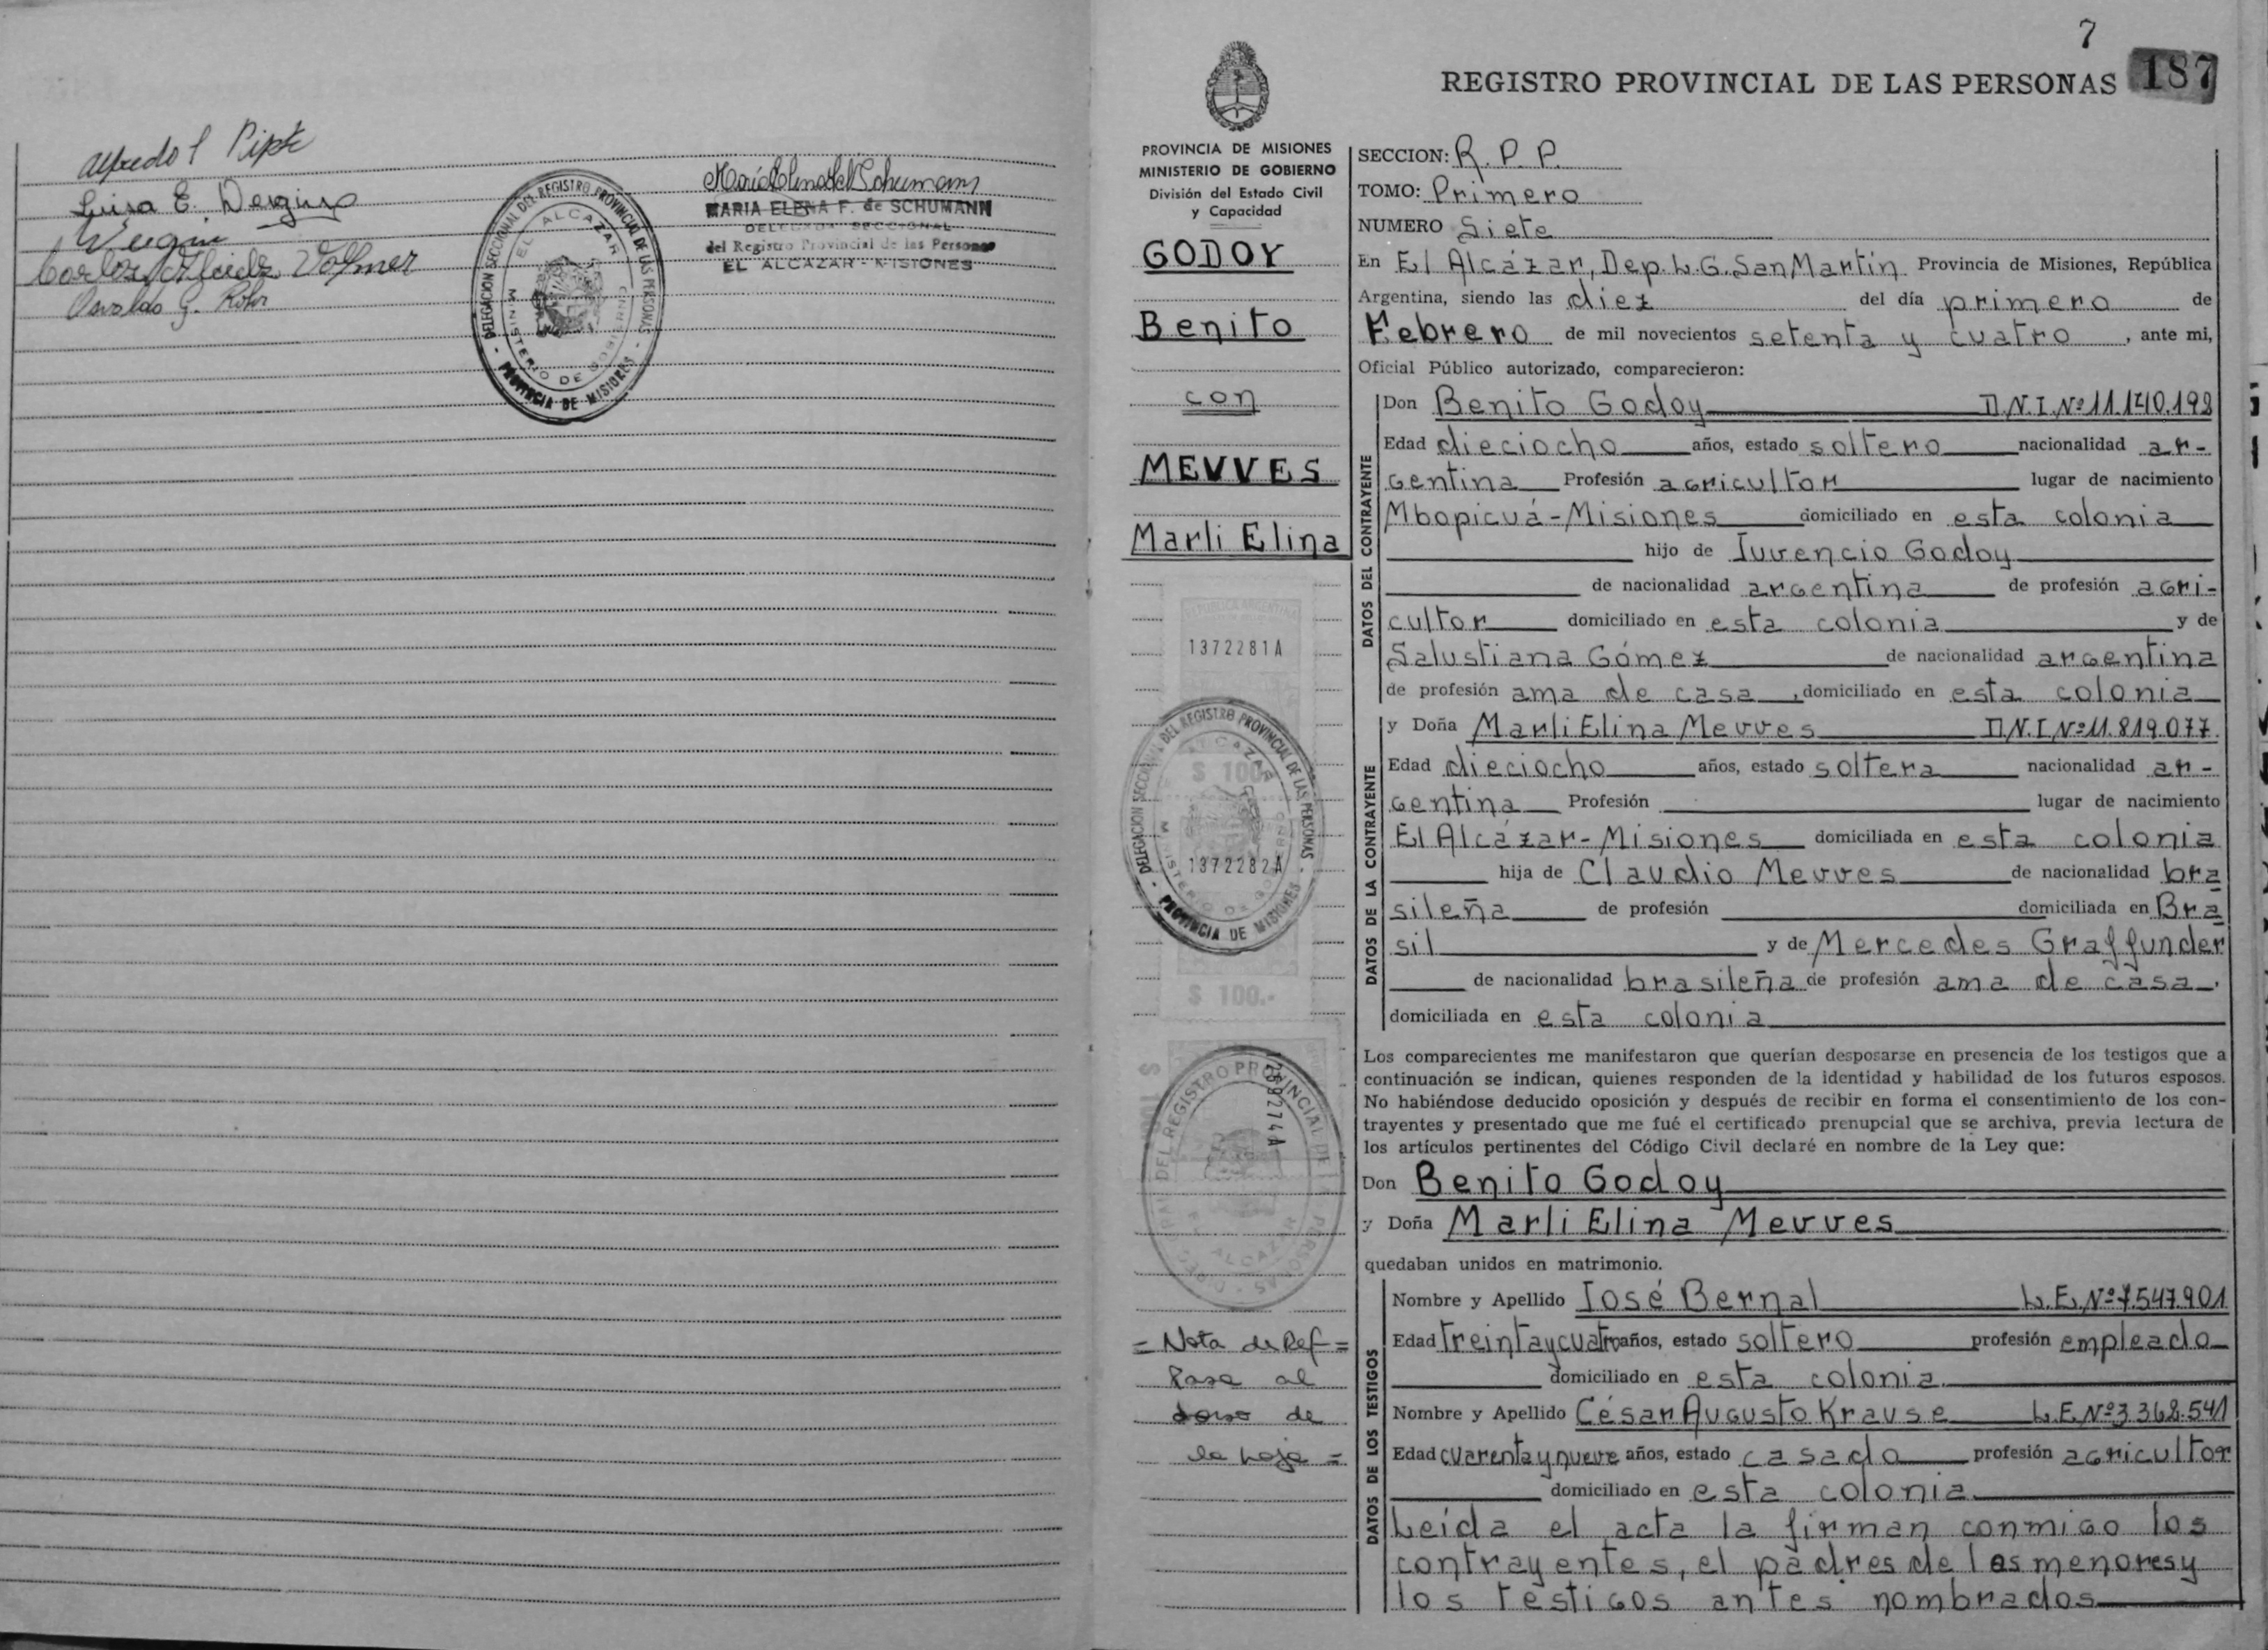 Alfredo
Luisa E.
Carlos Alcides Volmer
Osvaldo G. Rohr
DELEGACION SECCIONAL DEL REGISTRO PROVINCIAL DE LAS PERSONAS
EL ALCAZAR
MINISTERIO DE GOBIERNO
- PROVINCIA DE MISIONES -
MARIA ELENA F. de SCHUMANN
DELEGADA SECCIONAL
del Registro Provincial de las Personas
EL ALCAZAR - MISIONES
7
REGISTRO PROVINCIAL DE LAS PERSONAS 187
PROVINCIA DE MISIONES
MINISTERIO DE GOBIERNO
División del Estado Civil
y Capacidad
GODOY
Benito
con
MEVVES
Marli Elina
REPUBLICA ARGENTINA
1372281A
$ 100
DELEGACION SECCIONAL DEL REGISTRO PROVINCIAL DE LAS PERSONAS
EL ALCAZAR
1372282A
MINISTERIO DE GOBIERNO
- PROVINCIA DE MISIONES -
$ 100.-
DEL REGISTRO PROVINCIAL DE PERSONAS
ALCAZAR
= Nota de Ref =
Pasa al
dorso de
la hoja =
SECCION: R.P.P.
TOMO: Primero
NUMERO Siete
En El Alcázar, Dep. L.G. San Martín Provincia de Misiones, República
Argentina, siendo las diez del día primero de
Febrero de mil novecientos setenta y cuatro, ante mi,
Oficial Público autorizado, comparecieron:
DATOS DEL CONTRAYENTE
Don Benito Godoy D.N.I. Nº 11.140.198
Edad dieciocho años, estado soltero nacionalidad ar-
gentina Profesión agricultor lugar de nacimiento
Mbopicuá - Misiones domiciliado en esta colonia
hijo de Juvencio Godoy
de nacionalidad argentina de profesión agri-
cultor domiciliado en esta colonia y de
Salustiana Gómez de nacionalidad argentina
de profesión ama de casa, domiciliado en esta colonia
DATOS DE LA CONTRAYENTE
y Doña Marli Elina Mevves D.N.I Nº 11.819.077.
Edad dieciocho años, estado soltera nacionalidad ar-
gentina Profesión lugar de nacimiento
El Alcázar - Misiones domiciliada en esta colonia
hija de Claudio Mevves de nacionalidad bra
sileña de profesión domiciliada en Bra
sil y de Mercedes Graffunder
de nacionalidad brasileña de profesión ama de casa.
domiciliada en esta colonia
Los comparecientes me manifestaron que querían desposarse en presencia de los testigos que a
continuación se indican, quienes responden de la identidad y habilidad de los futuros esposos.
No habiéndose deducido oposición y después de recibir en forma el consentimiento de los con-
trayentes y presentado que me fué el certificado prenupcial que se archiva, previa lectura de
los artículos pertinentes del Código Civil declaré en nombre de la Ley que:
Don Benito Godoy
y Doña Marli Elina Mevves
quedaban unidos en matrimonio.
DATOS DE LOS TESTIGOS
Nombre y Apellido José Bernal L.E. Nº 7.547.901
Edad treinta y cuatro años, estado soltero profesión empleado
domiciliado en esta colonia.
Nombre y Apellido César Augusto Krause L.E. Nº 3.368.541
Edad cuarenta y nueve años, estado casado profesión agricultor
domiciliado en esta colonia.
Leída el acta la firman conmigo los
contrayentes, el padres de los menores y
los testigos antes nombrados